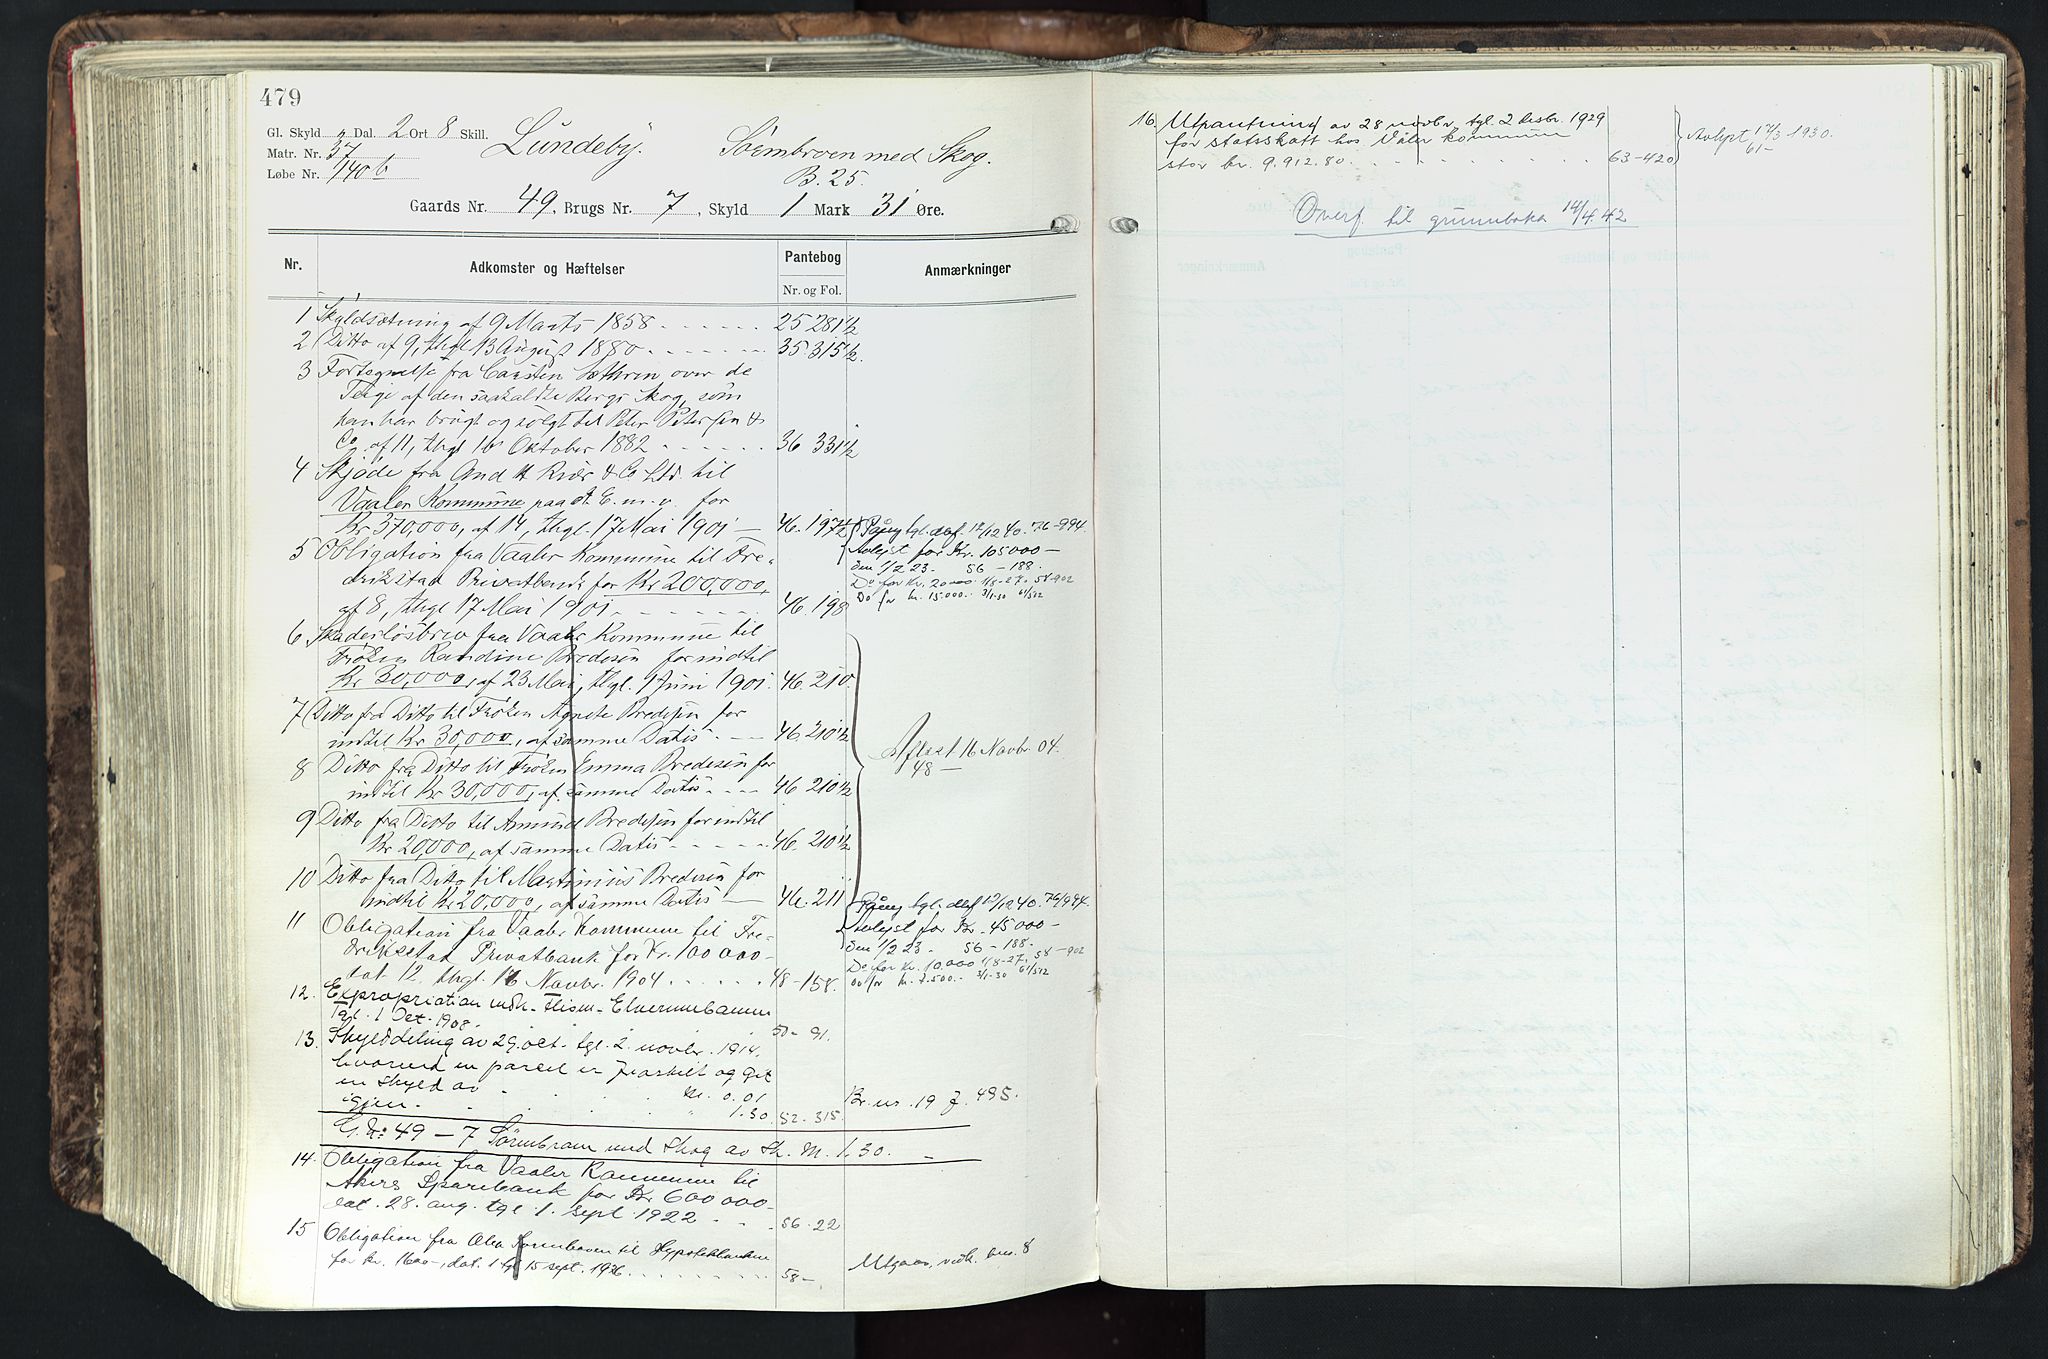 479
Gl. Skyld 2 Dal. 2 Ort 8 Skill.
Matr. Nr. 37
Løbe Nr. 140 b
Lundeby. Sørmbroen med Skog.
B. 25.
Gaards Nr. 49, Brugs Nr. 7, Skyld 1 Mark 31 Øre.
Nr. Adkomster og Hæftelser Pantebog Anmærkninger
Nr. og Fol.
1 Skyldsætning af 9 Marts 1858 25 281½
2 Ditto af 9, thgl 13 August 1880 35. 315½.
3 Fortegnelse fra Carsten Sæthren over de
Teige af den saakaldte Bergs Skog, som
han har brugt og solgt til Peter Petersen &
Co, af 11, thgl 16 Oktober 1882 36 331½
4 Skjøde fra And H Kiær & Co Ltd. til
Vaaler Kommune paa dt. E. m. v. for
Kr 370,000, af 14, thgl. 17 Mai 1901 46. 197½
5 Obligation fra Vaaler Kommune til Fre-
drikstad Privatbank for Kr 200,000,
af 8, thgl 17 Mai 1901 46. 198
Påteg tgl. daf. 12/12 40. 76-994.
Avlyst for Kr. 105000 –
den 1/2 23. 56 – 188.
Do for Kr. 20000 1/8-27. 58-902
Do for kr. 15.000. 3/1-30 61/512
6 Skadesløsbrev fra Vaaler Kommune til
Frøken Randine Bredesen for indtil
Kr 30,000, af 23 Mai, thgl. 1 Juni 1901. 46. 210.
7 Ditto fra Ditto til Frøken Agnete Bredesen for
indtil Kr 30,000, af samme Datis 46. 210½
8 Ditto fra Ditto til Frøken Emma Bredesen for
indtil Kr 30,000, af samme Datis 46 210½
9 Ditto fra Ditto til Amund Bredesen for indtil
Kr 20,000, af samme Datis 46. 210½
10 Ditto fra Ditto til Martinius Bredesen for
indtil Kr 20,000, af samme Datis 46. 211
Aflæst 16 Novbr. 04.
48 –
11 Obligation fra Vaaler Kommune til Fre-
drikstad Privatbank for Kr. 100 000 –
dat 12. thgl. 16 Novbr. 1904 48 – 158.
Påteg tgl. daf 12/12 40. 76/994.
Avlyst for Kr. 45000 –
den 1/2 23. 56 – 188.
Do for Kr. 10.000 1/8-27. 58-902
Do for kr. 7.500. 3/1-30 61/512
12. Expropriation vedk. Flisen-Elverumbanen
Tgl. 1 Oct. 1908. 50 – 91.
13. Skylddeling av 29. oct. tgl. 2. novbr. 1914,
hvorved en parcel er fraskilt og git
en skyld av M. 0.01 Br. nr. 19 f. 495.
igjen 1.30 52. 315.
G. Nr: 49 – 7 Sörmbroen med Skog av Sk. M. 1.30. –
14. Obligation fra Vaaler Kommune til
Akers Sparebank for Kr 600 000 –
dat. 28. aug. tgl. 1. Sept. 1922 56. 22
15 Obligation fra til Hypotekbanken
for kr. 1600 –, dat. 1 tgl 15 sept. 1926 58 –
Utgaar, vedk. bnr. 8
16. Utpantning av 28 novbr. tgl. 2 desbr. 1929
for statsskatt hos Våler kommune
stor kr. 9.912.80. 63-420
Avlyst 17/3 1930.
61 –
Overf. til grunnboka 14/4.42